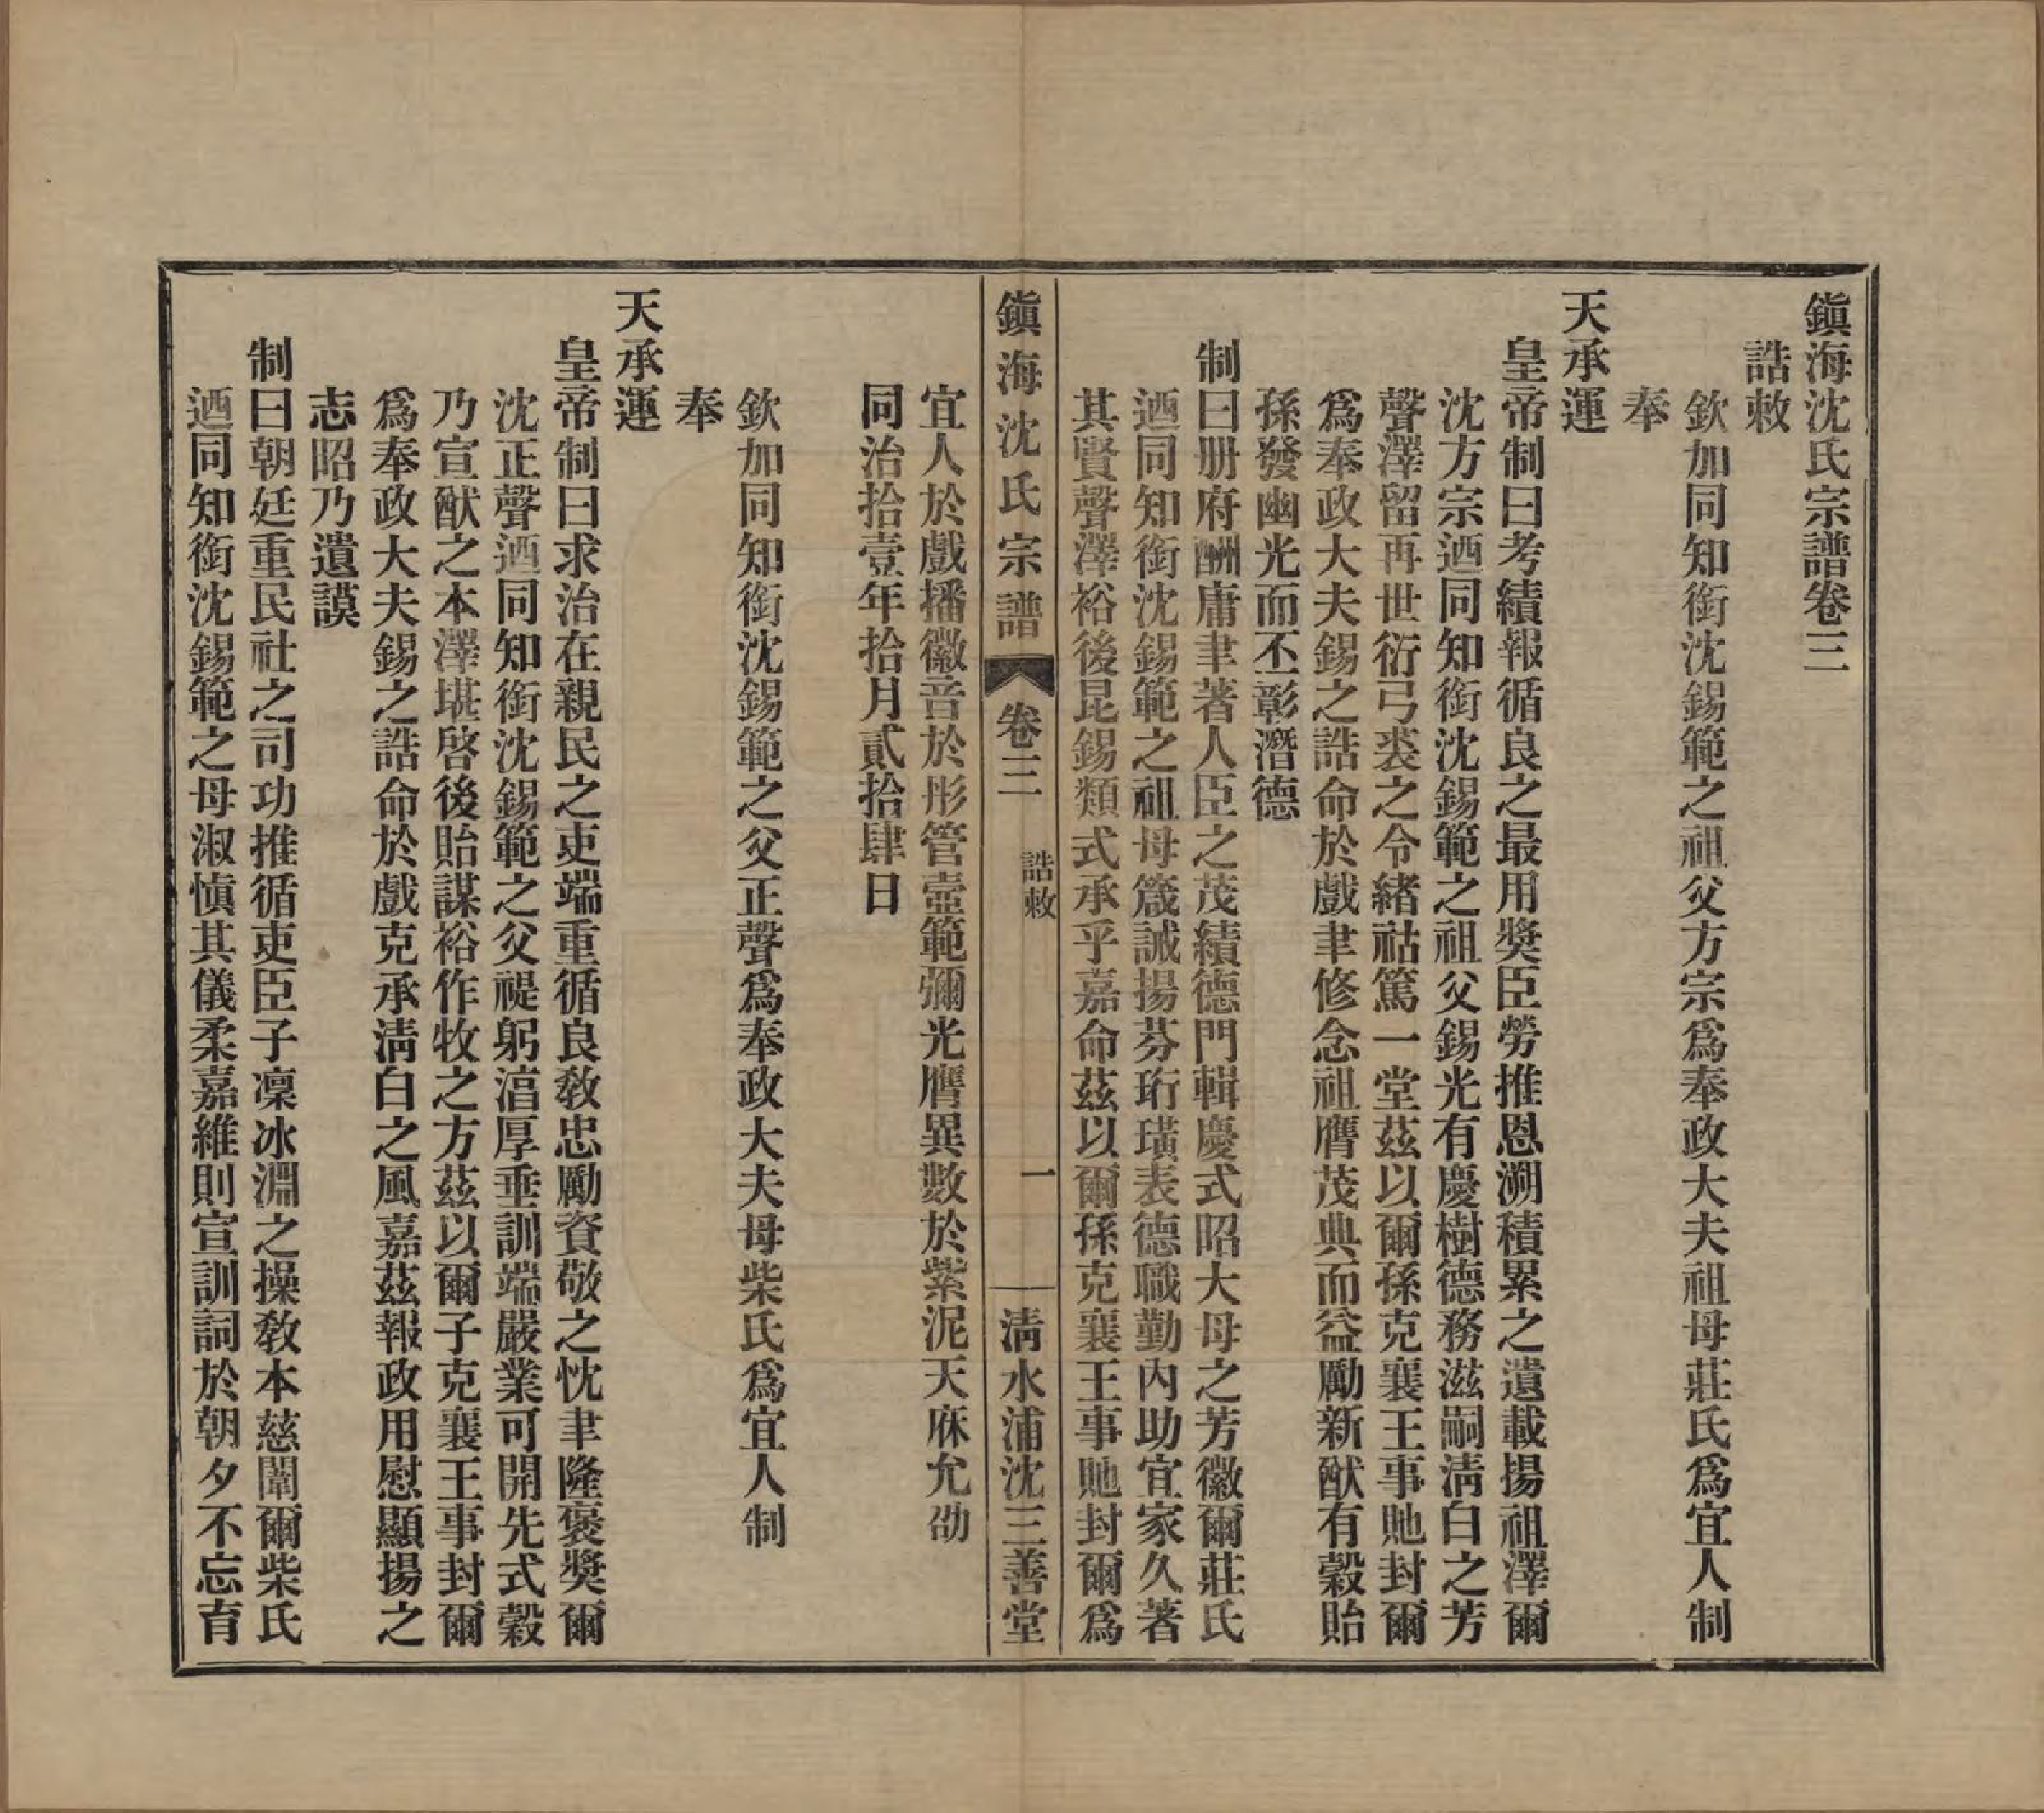 鎭海沈氏宗譜卷三
誥敕
欽加同知銜沈錫範之祖父方宗爲奉政大夫祖母莊氏爲宜人制
奉
天承運
皇帝制曰考績報循良之最用獎臣勞推恩溯積累之遺載揚祖澤爾
沈方宗迺同知銜沈錫範之祖父錫光有慶樹德務滋嗣淸白之芳
聲澤留再世衍弓裘之令緖祜篤一堂茲以爾孫克襄王事貤封爾
爲奉政大夫錫之誥命於戲聿修念祖膺茂典而益勵新猷有穀貽
孫發幽光而丕彰潛德
制曰册府酬庸聿著人臣之茂績德門輯慶式昭大母之芳徽爾莊氏
迺同知銜沈錫範之祖母箴誡揚芬珩璜表德職勤內助宜家久著
其賢聲澤裕後昆錫類式承乎嘉命茲以爾孫克襄王事貤封爾爲
鎭海沈氏宗譜
卷三
誥敕
一
淸水浦沈三善堂
宜人於戲播徽音於彤管壼範彌光膺異數於紫泥天庥允劭
同治拾壹年拾月貳拾肆日
欽加同知銜沈錫範之父正聲爲奉政大夫母柴氏爲宜人制
奉
天承運
皇帝制曰求治在親民之吏端重循良敎忠勵資敬之忱聿隆褒獎爾
沈正聲迺同知銜沈錫範之父禔躬淳厚垂訓端嚴業可開先式穀
乃宣猷之本澤堪啓後貽謀裕作牧之方茲以爾子克襄王事封爾
爲奉政大夫錫之誥命於戲克承淸白之風嘉茲報政用慰顯揚之
志昭乃遺謨
制曰朝廷重民社之司功推循吏臣子凜冰淵之操敎本慈闈爾柴氏
迺同知銜沈錫範之母淑愼其儀柔嘉維則宣訓詞於朝夕不忘育